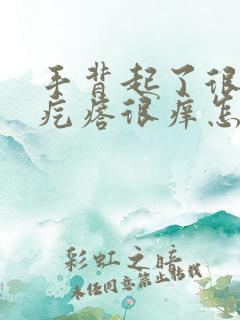 手背起了很
疙瘩很痒怎
彩虹之
未经同意禁止转载